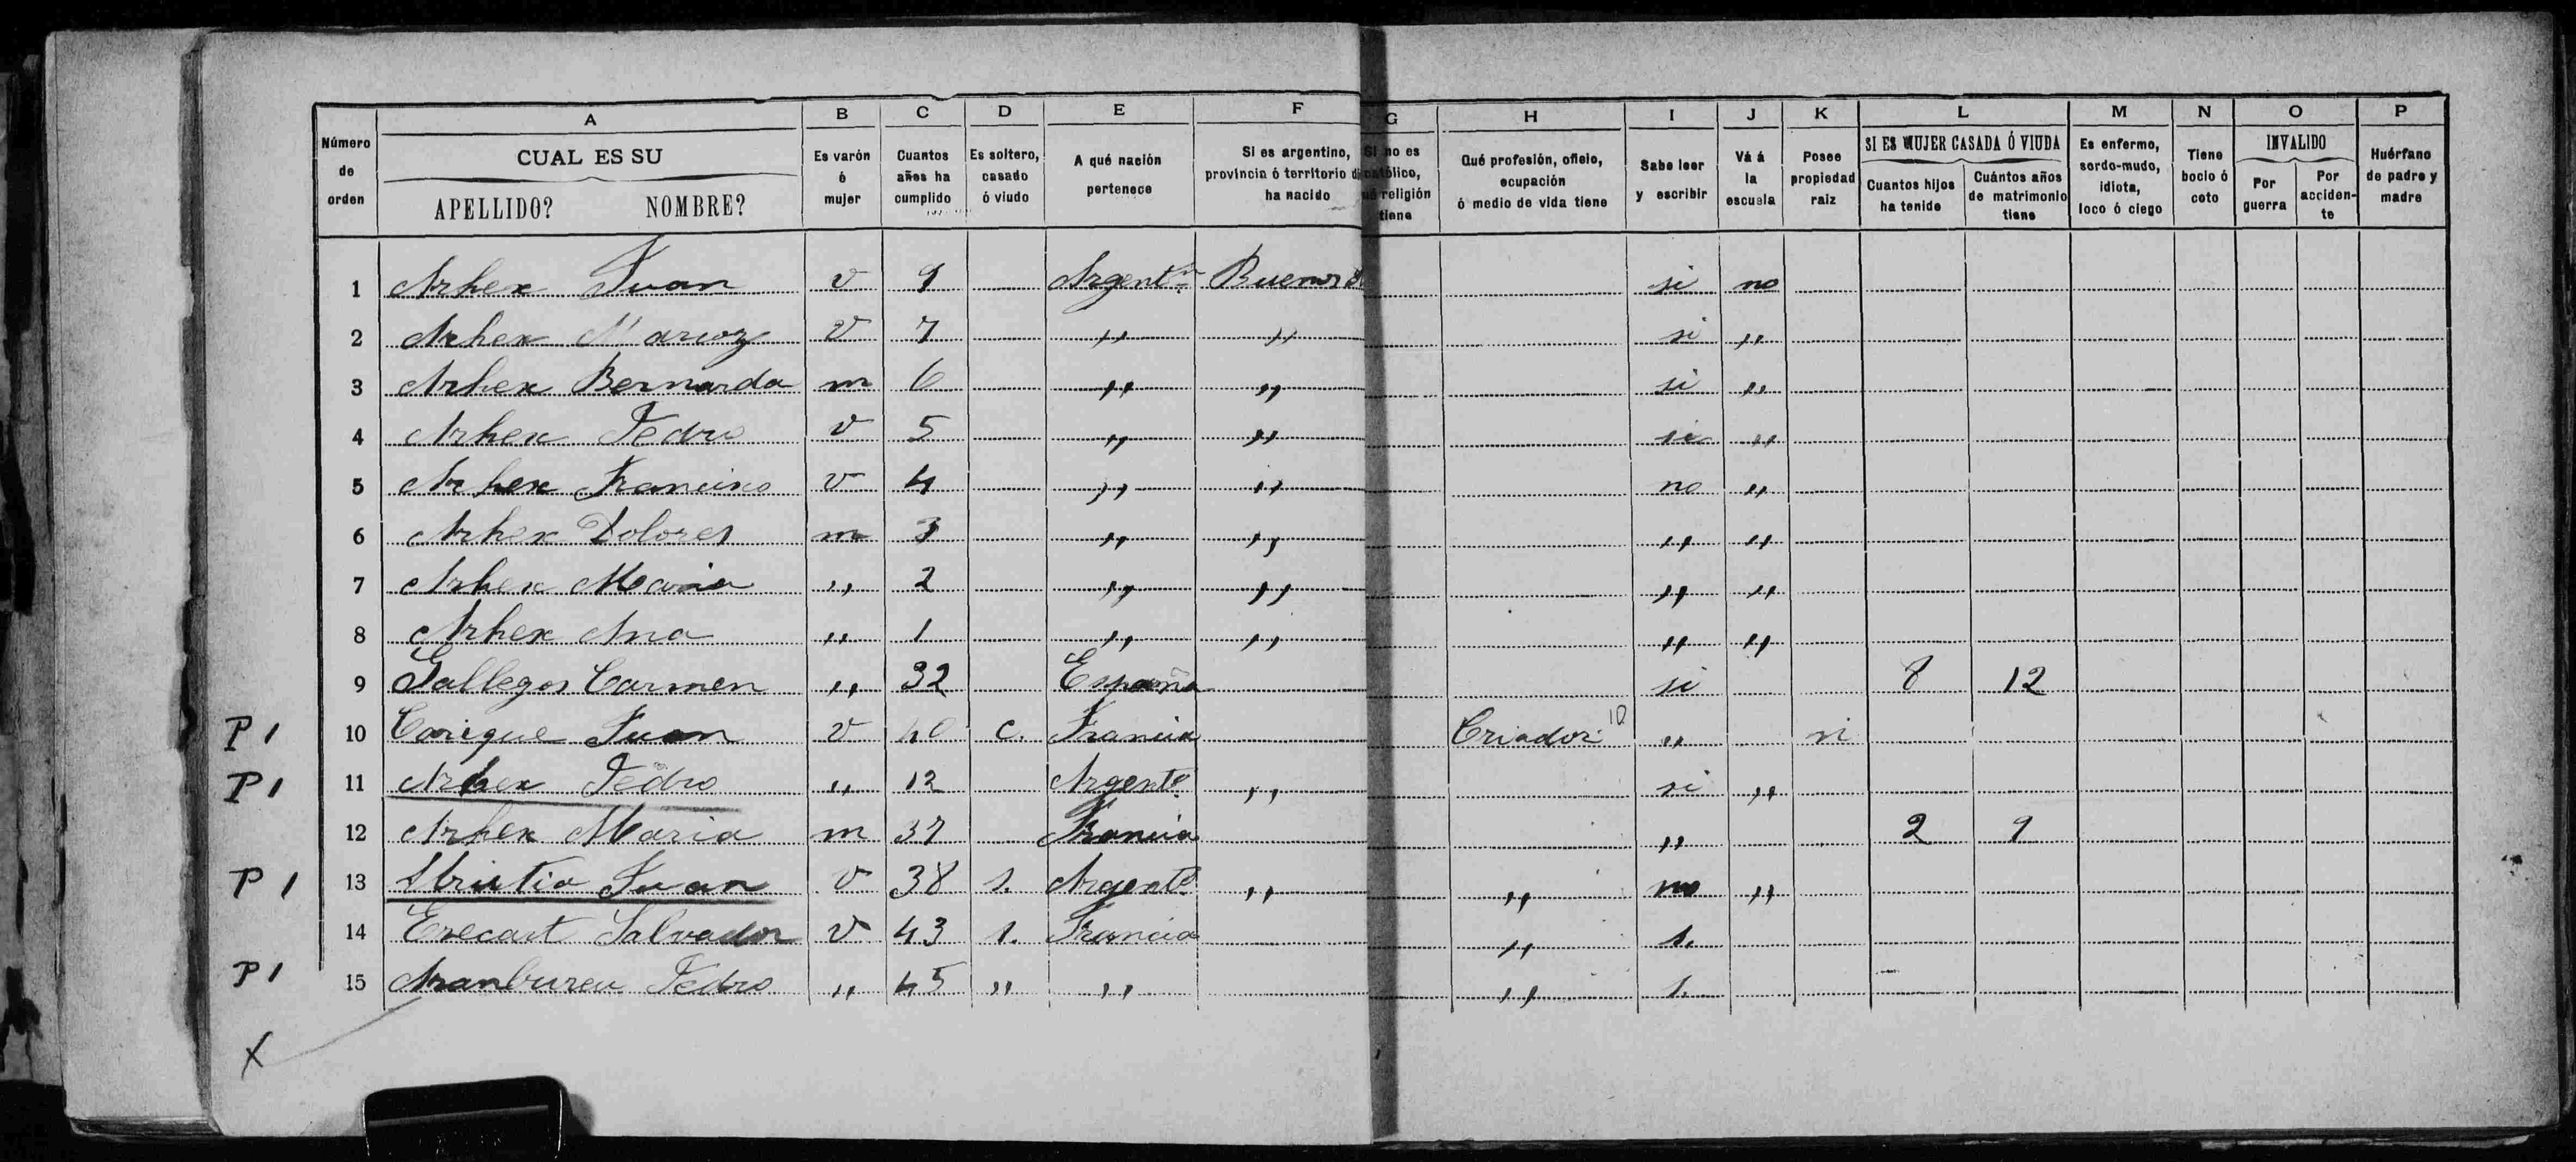 A B C D E F G H I J K L M N O P
Número de orden
CUAL ES SU
APELLIDO? NOMBRE?
Es varón ó mujer
Cuantos años ha cumplido
Es soltero, casado ó viudo
A qué nación pertenece
Si es argentino, provincia ó territorio
ha nacido
Si no es católico,
religión tiene
Qué profesión, oficio, ocupación ó medio de vida tiene
Sabe leer y escribir
Vá á la escuela
Posee propiedad raiz
SI ES MUJER CASADA Ó VIUDA
Cuantos hijos ha tenido
Cuántos años de matrimonio tiene
Es enfermo, sordo-mudo, idiota, loco ó ciego
Tiene bocio ó coto
INVALIDO
Por guerra
Por acciden-te
Huérfano de padre y madre
1 Arhex Juan v 9 Argentn Buenos si no
2 Arhex v 7 ,, ,, si ,,
3 Arhex Bernarda m 6 ,, ,, si ,,
4 Arhex Pedro v 5 ,, ,, si ,,
5 Arhex Francisco v 4 ,, ,, no ,,
6 Arhex Dolores m 3 ,, ,, ,, ,,
7 Arhex Maria ,, 2 ,, ,, ,, ,,
8 Arhex Ana ,, 1 ,, ,, ,, ,,
9 Gallegos Carmen ,, 32 España si 8 12
P1 10 Carique Juan v 40 c. Francia Criador 10 ,, si
P1 11 Arhex Pedro ,, 12 Argente ,, si ,,
12 Arhex Maria m 37 Francia ,, 2 9
P1 13 Juan v 38 s. Argente ,, ,, no ,,
14 Erecart Salvador v 43 s. Francia ,, s.
P1 15 Aranbureu Pedro ,, 45 ,, ,, ,, s.
X